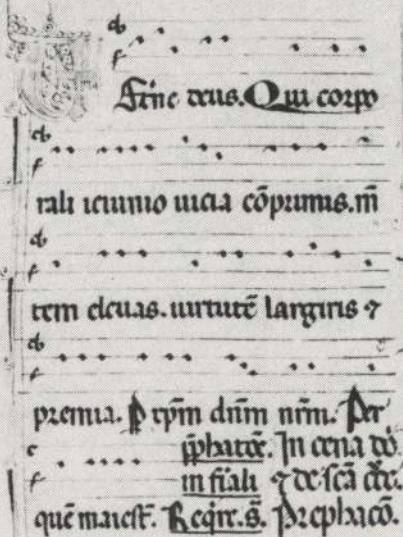 Etne deus. Qui corpo
rali ieiunio uicia cōprimis. m̄
tem eleuas. uirtutē largiris ⁊
premia. P xp̄m dn̄m nr̄m. Per
p̄phatōē. In cena dō
in fīali ⁊ de sc̄a crc̄e.
quē maiest̄. Reqīre. s̄. Prephacō.